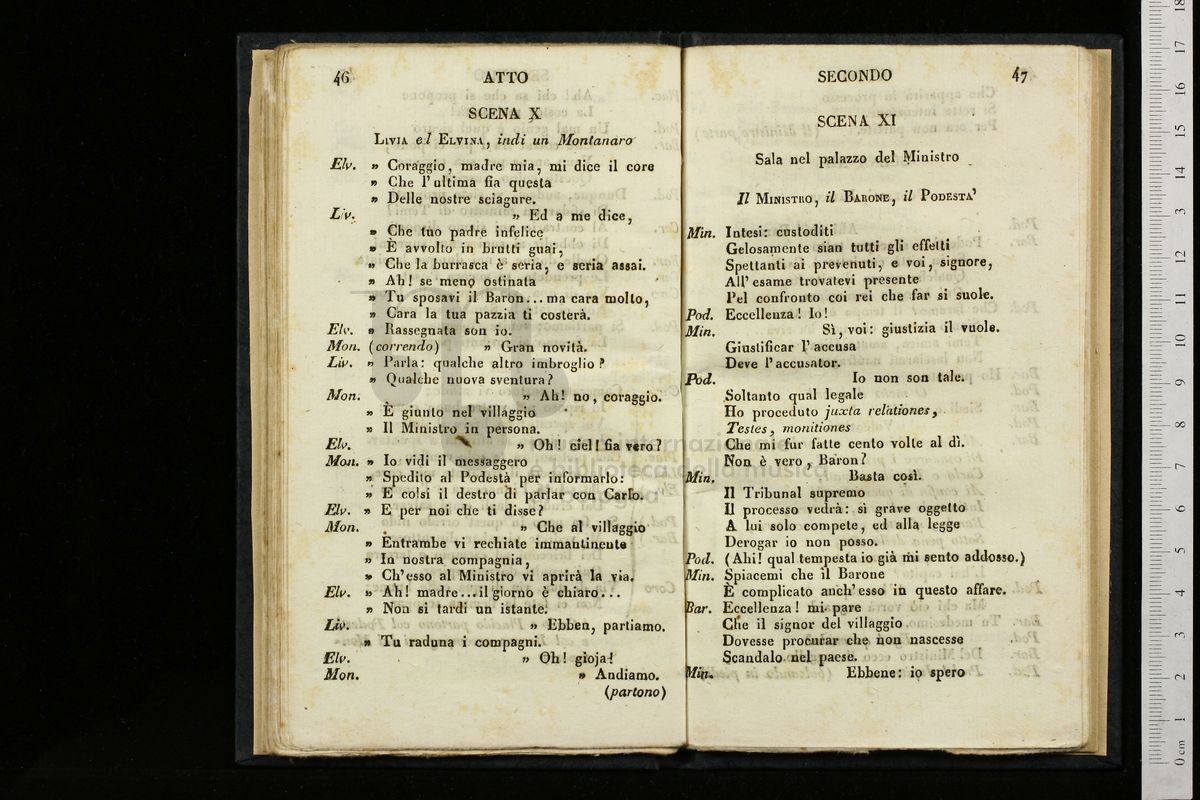 46 ATTO
SCENA X
LIVIA ed ELVINA, indi un Montanaro
Elv. » Coraggio, madre mia, mi dice il core
» Che l'ultima fia questa
» Delle nostre sciagure.
Liv. » Ed a me dice,
» Che tuo padre infelice
» È avvolto in brutti guai,
» Che la burrasca è seria, e seria assai.
» Ah! se meno ostinata
» Tu sposavi il Baron... ma cara molto,
» Cara la tua pazzia ti costerà.
Elv. » Rassegnata son io.
Mon. (correndo) » Gran novità.
Liv. » Parla: qualche altro imbroglio?
» Qualche nuova sventura?
Mon. » Ah! no, coraggio.
» È giunto nel villaggio
» Il Ministro in persona.
Elv. » Oh! ciel! fia vero?
Mon. » Io vidi il messaggero
» Spedito al Podestà per informarlo:
» E colsi il destro di parlar con Carlo.
Elv. » E per noi che ti disse?
Mon. » Che al villaggio
» Entrambe vi rechiate immantinente
» In nostra compagnia,
» Ch'esso al Ministro vi aprirà la via.
Elv. » Ah! madre... il giorno è chiaro...
» Non si tardi un istante.
Liv. » Ebben, partiamo.
» Tu raduna i compagni.
Elv. » Oh! gioja!
Mon. » Andiamo.
(partono)
SECONDO 47
SCENA XI
Sala nel palazzo del Ministro
Il MINISTRO, il BARONE, il PODESTA'
Min. Intesi: custoditi
Gelosamente sian tutti gli effetti
Spettanti ai prevenuti, e voi, signore,
All'esame trovatevi presente
Pel confronto coi rei che far si suole.
Pod. Eccellenza! Io!
Min. Sì, voi: giustizia il vuole.
Giustificar l'accusa
Deve l'accusator.
Pod. Io non son tale.
Soltanto qual legale
Ho proceduto juxta relationes,
Testes, monitiones
Che mi fur fatte cento volte al dì.
Non è vero, Baron?
Min. Basta così.
Il Tribunal supremo
Il processo vedrà: sì grave oggetto
A lui solo compete, ed alla legge
Derogar io non posso.
Pod. (Ahi! qual tempesta io già mi sento addosso.)
Min. Spiacemi che il Barone
È complicato anch'esso in questo affare.
Bar. Eccellenza! mi pare
Che il signor del villaggio
Dovesse procurar che non nascesse
Scandalo nel paese.
Min. Ebbene: io spero
internazionale
e biblioteca della musica